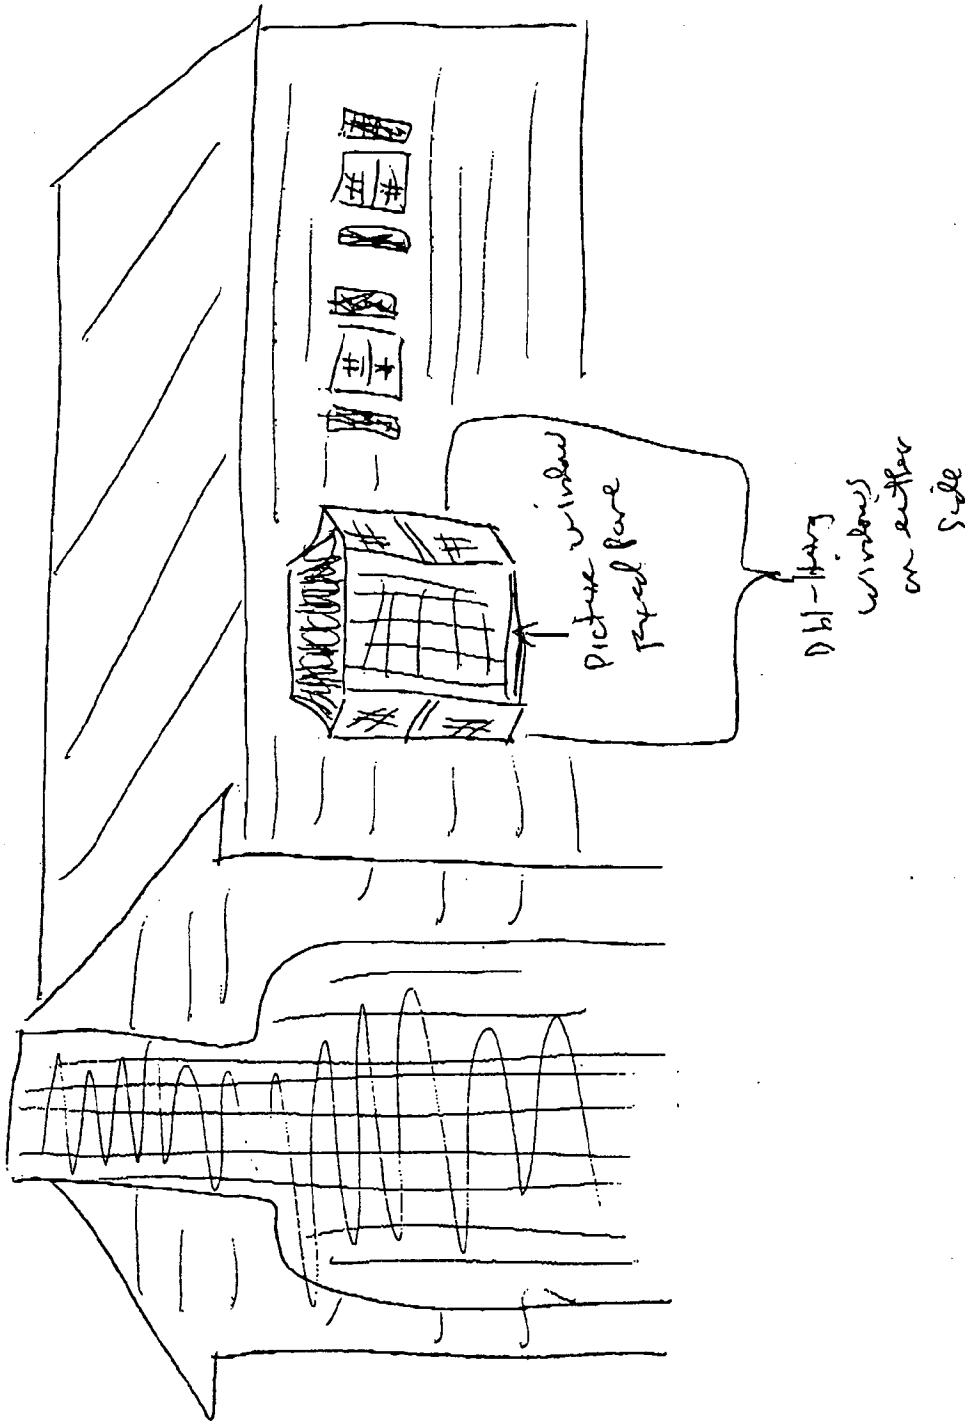 Picture window
Fixed Pane
Dbl-Hung
windows
on either
side